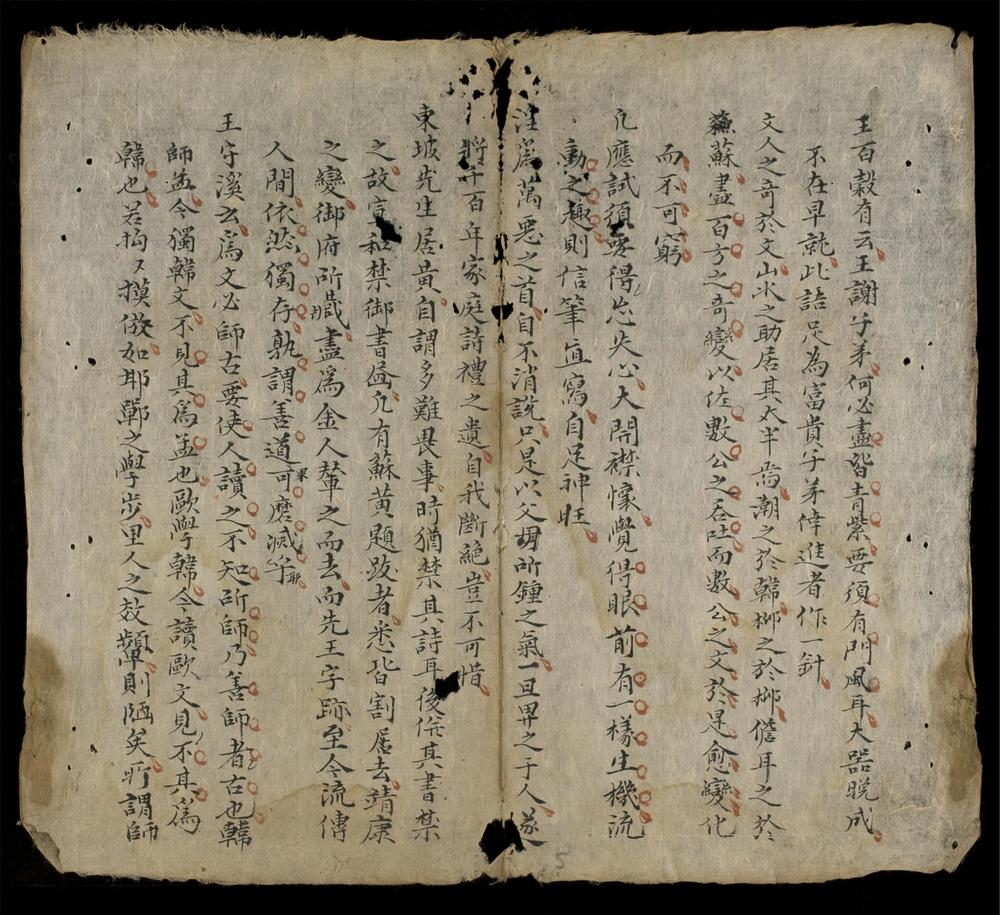 王百穀有云王謝子弟何必盡皆青紫要須有門風耳大器晩成
不在早就此語足為富貴子弟倖進者作一針
文人之竒於文山水之助居其太半焉潮之於韓栁之於栁儋耳之於
蘇盡百方之竒變以佐數公之吞吐而數公之文於是愈變化
而不可窮
凢應試須要得㤀失心大開襟懷覺得眼前有一樣生機流
動之趣則信筆直寫自足神旺
淫爲萬惡之首自不消說只是以父母所鍾之氣一旦畀之于人遂
將千百年家庭詩禮之遺自我斷絶豈不可惜
東坡先生居黄自謂多難畏事時猶禁其詩耳後併其書禁
之故宣和禁御書畫凢有蘇黄題跋者悉皆割居去靖康
之變御府所藏盡爲金人輦之而去而先王字跡至今流傳
人間依然獨存孰謂善道果可磨滅乎耶
王字溪云爲文必師古要使人讀之不知所師乃善師者古也韓
師孟今獨韓文不見其爲孟也歐學韓今讀歐文見不其爲
韓也若拘〻摸倣如邯鄲之學步里人之效顰則陋矣所謂師